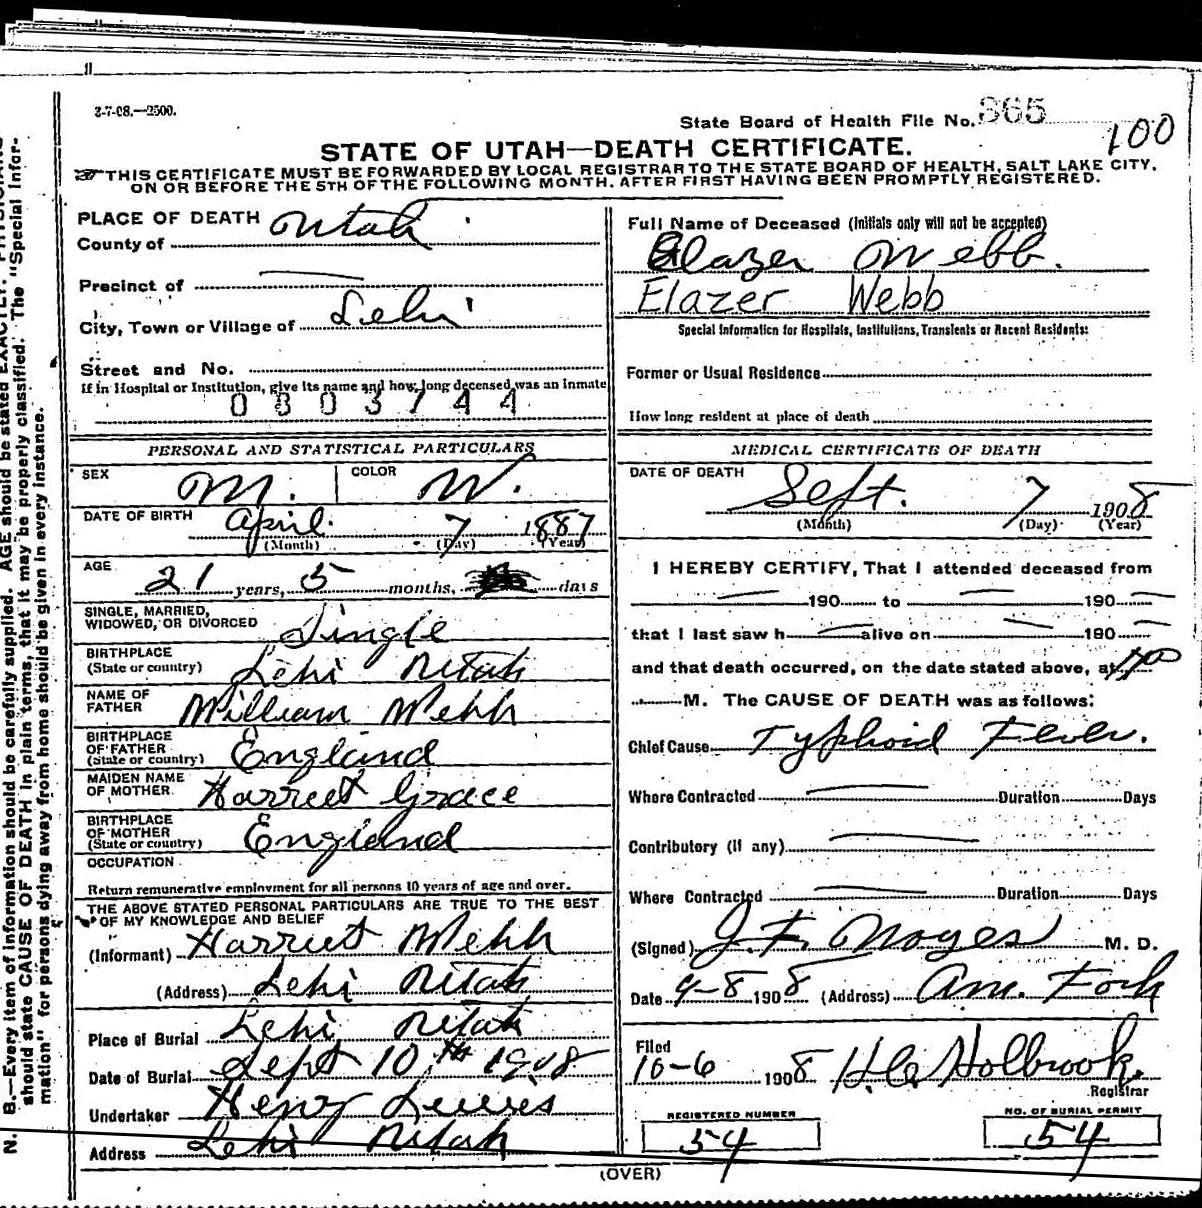 11
3-7-08.—2500.
State Board of Health File No. 365
100
STATE OF UTAH—DEATH CERTIFICATE.
THIS CERTIFICATE MUST BE FORWARDED BY LOCAL REGISTRAR TO THE STATE BOARD OF HEALTH, SALT LAKE CITY,
ON OR BEFORE THE 5TH OF THE FOLLOWING MONTH, AFTER FIRST HAVING BEEN PROMPTLY REGISTERED.
PLACE OF DEATH
County of Utah
Precinct of
City, Town or Village of Lehi
Street and No.
If in Hospital or Institution, give its name and how long deceased was an inmate
0303744
PERSONAL AND STATISTICAL PARTICULARS
SEX M. COLOR W.
DATE OF BIRTH April 7 1887
(Month) (Day) (Year)
AGE 21 years, 5 months, days
SINGLE, MARRIED,
WIDOWED, OR DIVORCED Single
BIRTHPLACE
(State or country) Lehi Utah
NAME OF
FATHER William Webb
BIRTHPLACE
OF FATHER
(State or country) England
MAIDEN NAME
OF MOTHER Harriet Grace
BIRTHPLACE
OF MOTHER
(State or country) England
OCCUPATION
Return remunerative employment for all persons 10 years of age and over.
THE ABOVE STATED PERSONAL PARTICULARS ARE TRUE TO THE BEST
OF MY KNOWLEDGE AND BELIEF
(Informant) Harriet Webb
(Address) Lehi Utah
Place of Burial Lehi Utah
Date of Burial Sept 10th 1908
Undertaker Henry Lewis
Address Lehi Utah
Full Name of Deceased (Initials only will not be accepted)
Elazer Webb.
Elazer Webb
Special Information for Hospitals, Institutions, Transients or Recent Residents:
Former or Usual Residence
How long resident at place of death
MEDICAL CERTIFICATE OF DEATH
DATE OF DEATH
Sept. 7 1908
(Month) (Day) (Year)
I HEREBY CERTIFY, That I attended deceased from
190 to 190
that I last saw h alive on 190
and that death occurred, on the date stated above, at
M. The CAUSE OF DEATH was as follows:
Chief Cause Typhoid Fever.
Where Contracted Duration Days
Contributory (if any)
Where Contracted Duration Days
(Signed) J. F. Noyes M. D.
Date 9-8 1908 (Address) Am. Fork
Filed
10-6 1908 H.C. Holbrook,
Registrar
REGISTERED NUMBER
54
NO. OF BURIAL PERMIT
54
(OVER)
N. B.—Every item of information should be carefully supplied. AGE should be stated EXACTLY. PHYSICIANS
should state CAUSE OF DEATH in plain terms, that it may be properly classified. The "Special Infor-
mation" for persons dying away from home should be given in every instance.